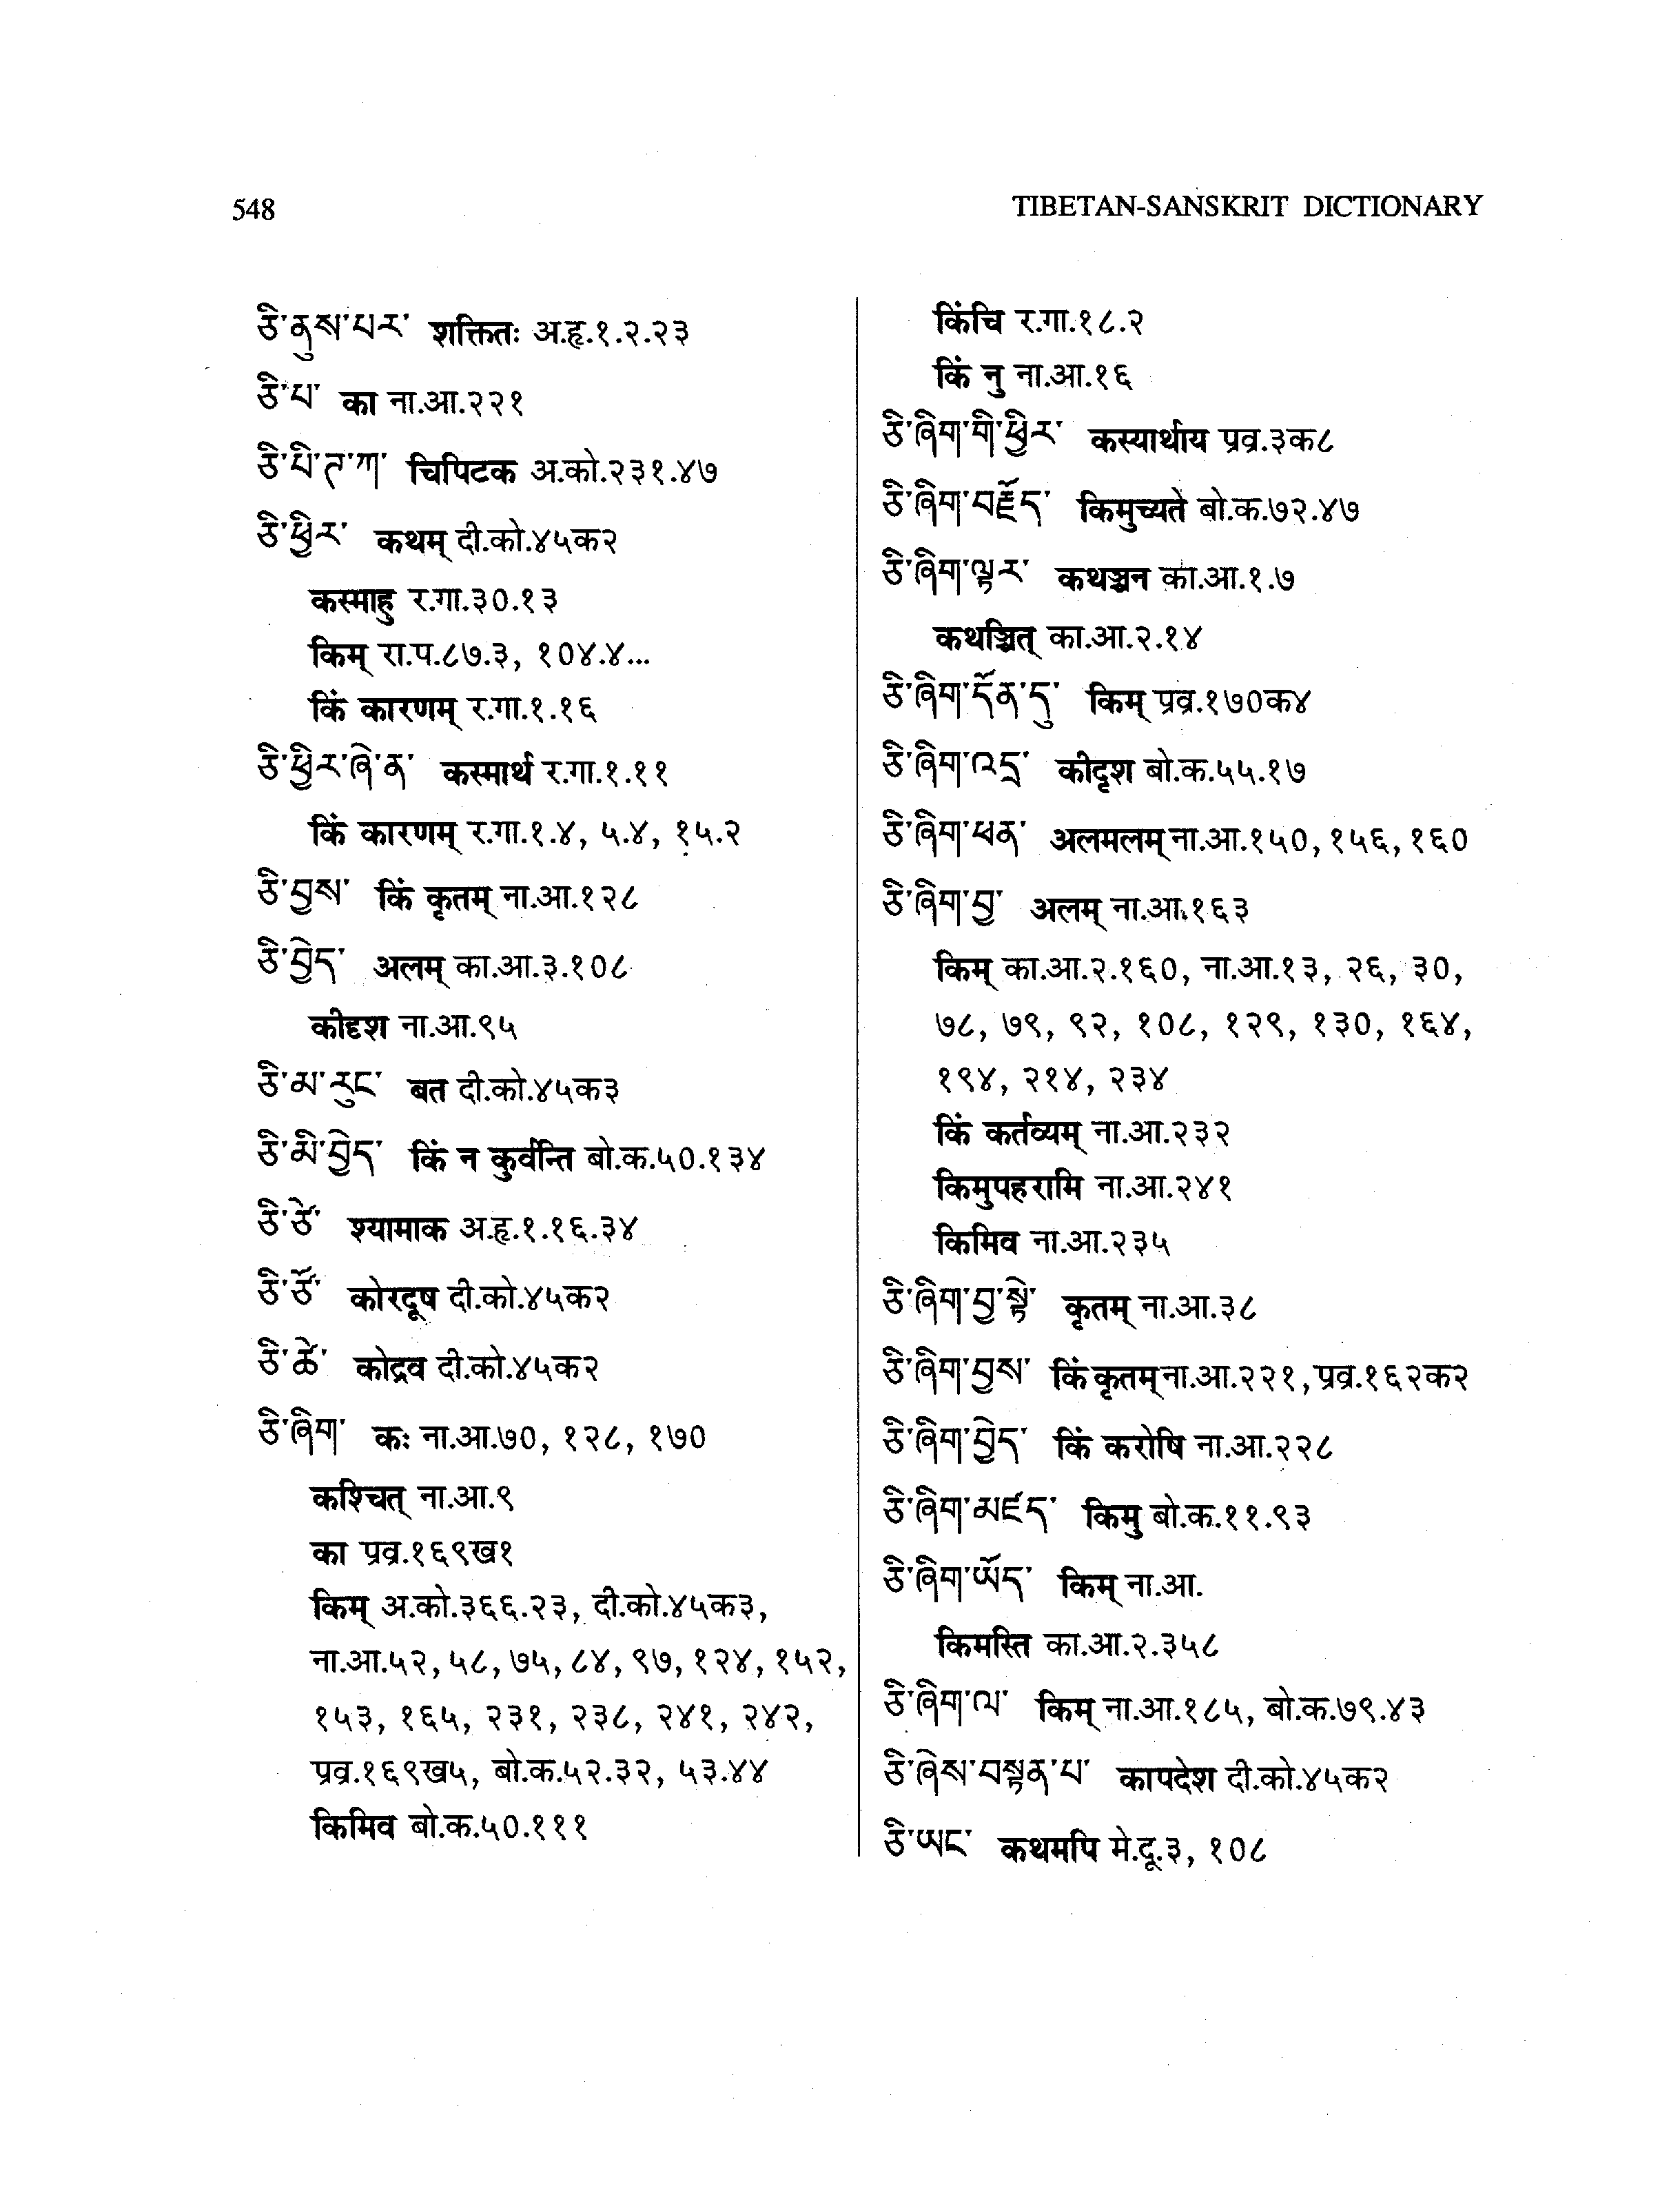 548
TIBETAN-SANSKRIT DICTIONARY
ཅི་ནུས་པར་ शक्तितः अ.हृ.१.२.२३
ཅི་པ་ का ना.आ.२२१
ཅི་པི་ཊ་ཀ་ चिपिटक अ.को.२३१.४७
ཅི་ཕྱིར་ कथम् दी.को.४५क२
कस्माहु र.गा.३०.१३
किम् रा.प.८७.३, १०४.४...
किं कारणम् र.गा.१.१६
ཅི་ཕྱིར་ཞེ་ན་ कस्मार्थ र.गा.१.११
किं कारणम् र.गा.१.४, ५.४, १५.२
ཅི་བྱས་ किं कृतम् ना.आ.१२८
ཅི་བྱེད་ अलम् का.आ.३.१०८
कीदृश ना.आ.९५
ཅི་མ་རུང་ बत दी.को.४५क३
ཅི་མི་བྱེད་ किं न कुर्वन्ति बो.क.५०.१३४
ཅི་ཙེ་ श्यामाक अ.हृ.१.१६.३४
ཅི་ཙོ་ कोरदूष दी.को.४५क२
ཅི་ཚེ་ कोद्रव दी.को.४५क२
ཅི་ཞིག་ कः ना.आ.७०, १२८, १७०
कश्चित् ना.आ.९
का प्रव्र.१६९ख१
किम् अ.को.३६६.२३, दी.को.४५क३,
ना.आ.५२, ५८, ७५, ८४, ९७, १२४, १५२,
१५३, १६५, २३१, २३८, २४१, २४२,
प्रव्र.१६९ख५, बो.क.५२.३२, ५३.४४
किमिव बो.क.५०.१११
किंचि र.गा.१८.२
किं नु ना.आ.१६
ཅི་ཞིག་གི་ཕྱིར་ कस्यार्थाय प्रव्र.३क८
ཅི་ཞིག་བརྗོད་ किमुच्यते बो.क.७२.४७
ཅི་ཞིག་ལྟར་ कथञ्चन का.आ.१.७
कथञ्चित् का.आ.२.१४
ཅི་ཞིག་དོན་དུ་ किम् प्रव्र.१७०क४
ཅི་ཞིག་འདྲ་ कीदृश बो.क.५५.१७
ཅི་ཞིག་ཕན་ अलमलम् ना.आ.१५०, १५६, १६०
ཅི་ཞིག་བྱ་ अलम् ना.आ.१६३
किम् का.आ.२.१६०, ना.आ.१३, २६, ३०,
७८, ७९, ९२, १०८, १२९, १३०, १६४,
१९४, २१४, २३४
किं कर्तव्यम् ना.आ.२३२
किमुपहरामि ना.आ.२४१
किमिव ना.आ.२३५
ཅི་ཞིག་བྱ་སྟེ་ कृतम् ना.आ.३८
ཅི་ཞིག་བྱས་ किं कृतम् ना.आ.२२१, प्रव्र.१६२क२
ཅི་ཞིག་བྱེད་ किं करोषि ना.आ.२२८
ཅི་ཞིག་མཛད་ किमु बो.क.११.९३
ཅི་ཞིག་ཡོད་ किम् ना.आ.
किमस्ति का.आ.२.३५८
ཅི་ཞིག་ལ་ किम् ना.आ.१८५, बो.क.७९.४३
ཅི་ཞེས་བསྟན་པ་ कापदेश दी.को.४५क२
ཅི་ཡང་ कथमपि मे.दू.३, १०८